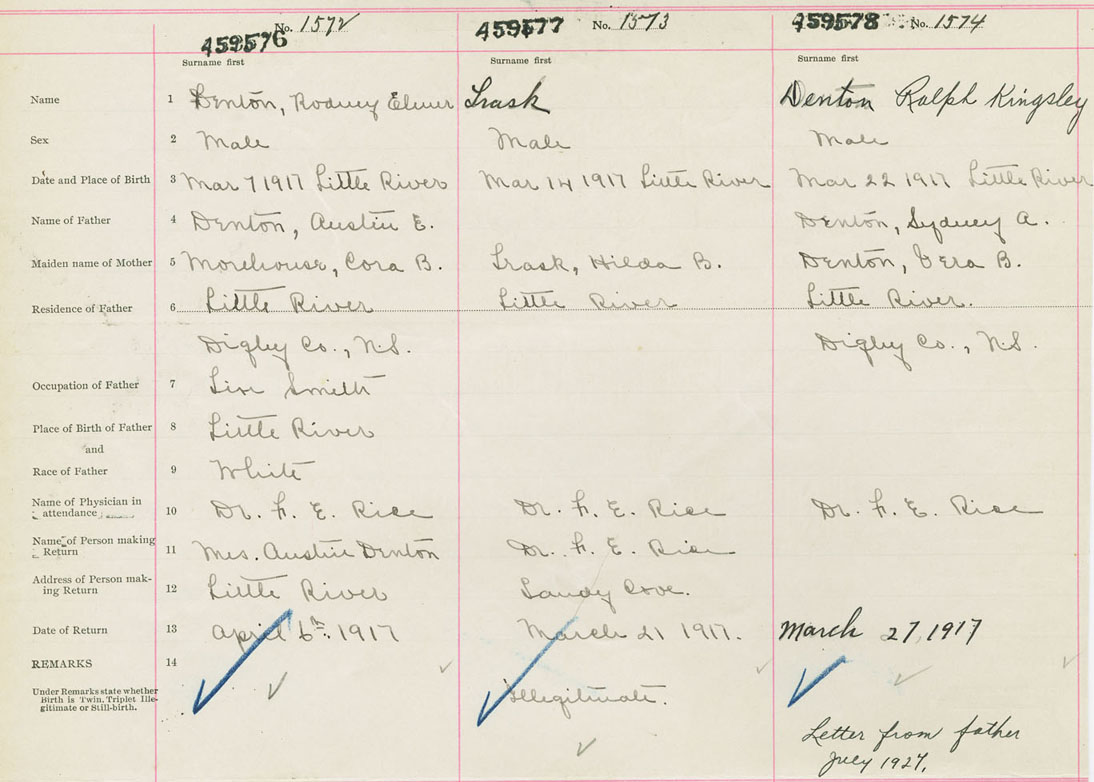 No. 1572 459577 No. 1573 459578 No. 1574
459576
Surname first Surname first Surname first
Name 1 Denton, Rodney Elmer Trask Denton Ralph Kingsley
Sex 2 Male Male Male
Date and Place of Birth 3 Mar 7 1917 Little River Mar 14 1917 Little River Mar 22 1917 Little River
Name of Father 4 Denton, Austin E. Denton, Sydney A.
Maiden name of Mother 5 Morehouse, Cora B. Trask, Hilda B. Denton, Vera B.
Residence of Father 6 Little River Little River Little River.
Digby Co., N.S. Digby Co., N.S.
Occupation of Father 7 Smith
Place of Birth of Father 8 Little River
and
Race of Father 9 White
Name of Physician in
attendance 10 Dr. F. E. Rice Dr. F. E. Rice Dr. F. E. Rice
Name of Person making
Return 11 Mrs. Austin Denton Dr. F. E. Rice
Address of Person mak-
ing Return 12 Little River Sandy Cove.
Date of Return 13 April 6th. 1917 March 21 1917. March 27, 1917
REMARKS 14
Under Remarks state whether
Birth is Twin, Triplet Ille-
gitimate or Still-birth. Illegitimate.
Letter from father
July 1927.